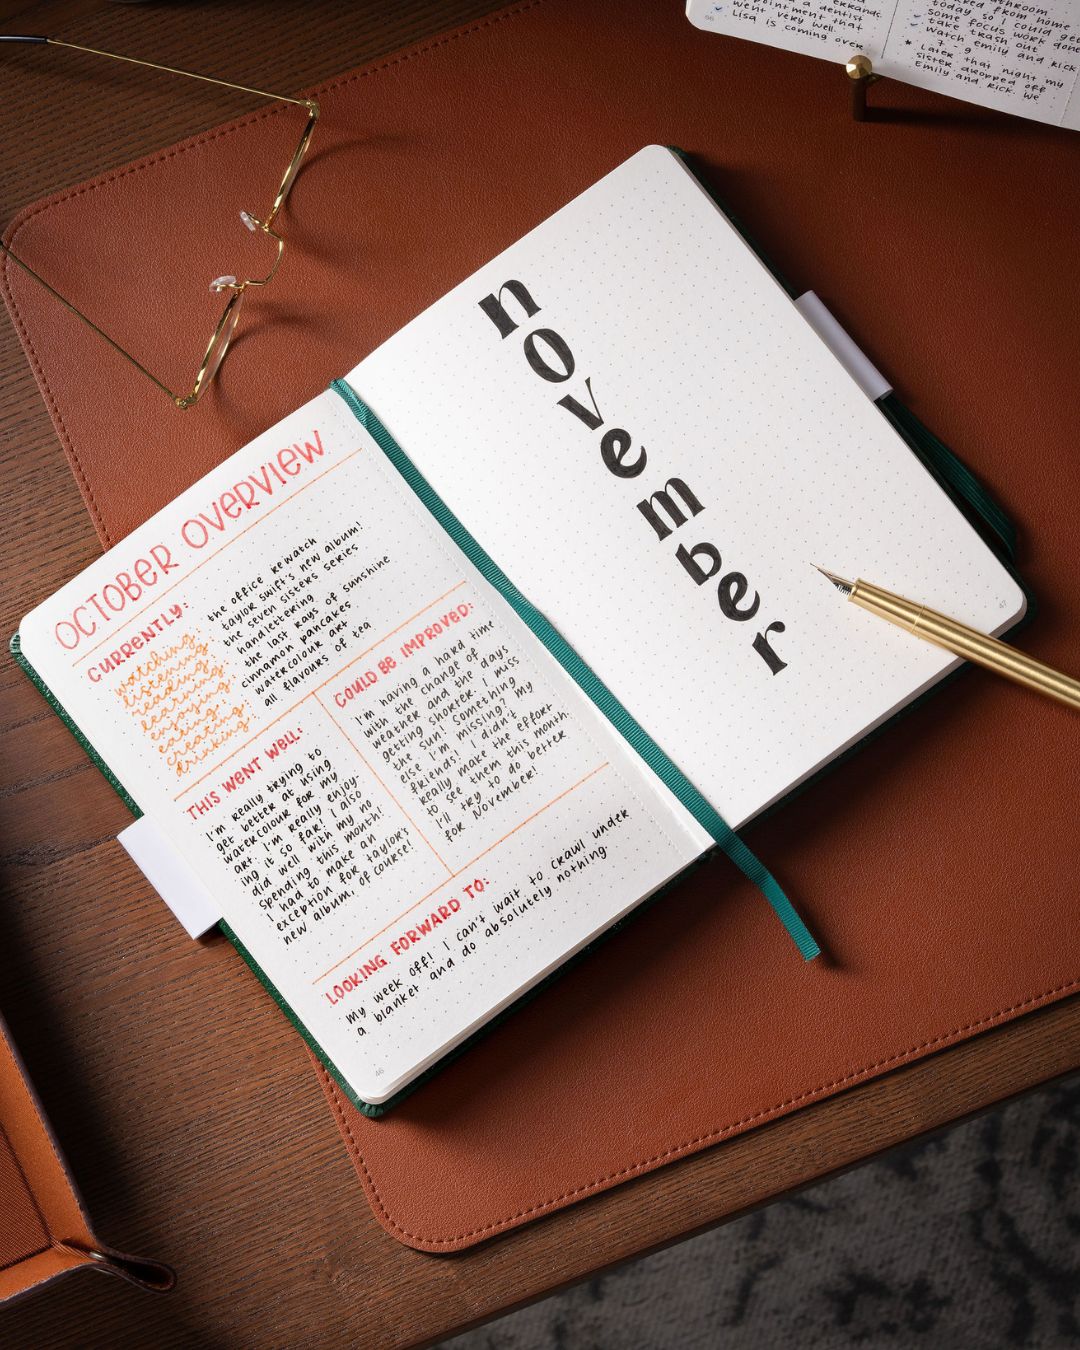 OCTOBER OVERVIEW
CURRENTLY:
watching: the office rewatch
listening: taylor swift's new album!
reading: the seven sisters series
learning: handlettering
enjoying: the last rays of sunshine
eating: cinnamon pancakes
creating: watercolour art
drinking: all flavours of tea
THIS WENT WELL:
I'm really trying to
get better at using
watercolour for my
art. I'm really enjoy-
ing it so far! I also
did well with my no
spending this month!
I had to make an
exception for taylor's
new album, of course!
COULD BE IMPROVED:
I'm having a hard time
with the change of
weather and the days
getting shorter. I miss
the sun! Something
else I'm missing? my
friends! I didn't
really make the effort
to see them this month.
I'll try to do better
for November!
LOOKING FORWARD TO:
My week off! I can't wait to crawl under
a blanket and do absolutely nothing.
46
november
47
pointment that
went very well.
Lisa is coming over
96
from home
today so I could get
some focus work done
take trash out
watch emily and Rick
7 - 9
Later that night my
sister dropped off
Emily and Rick. We